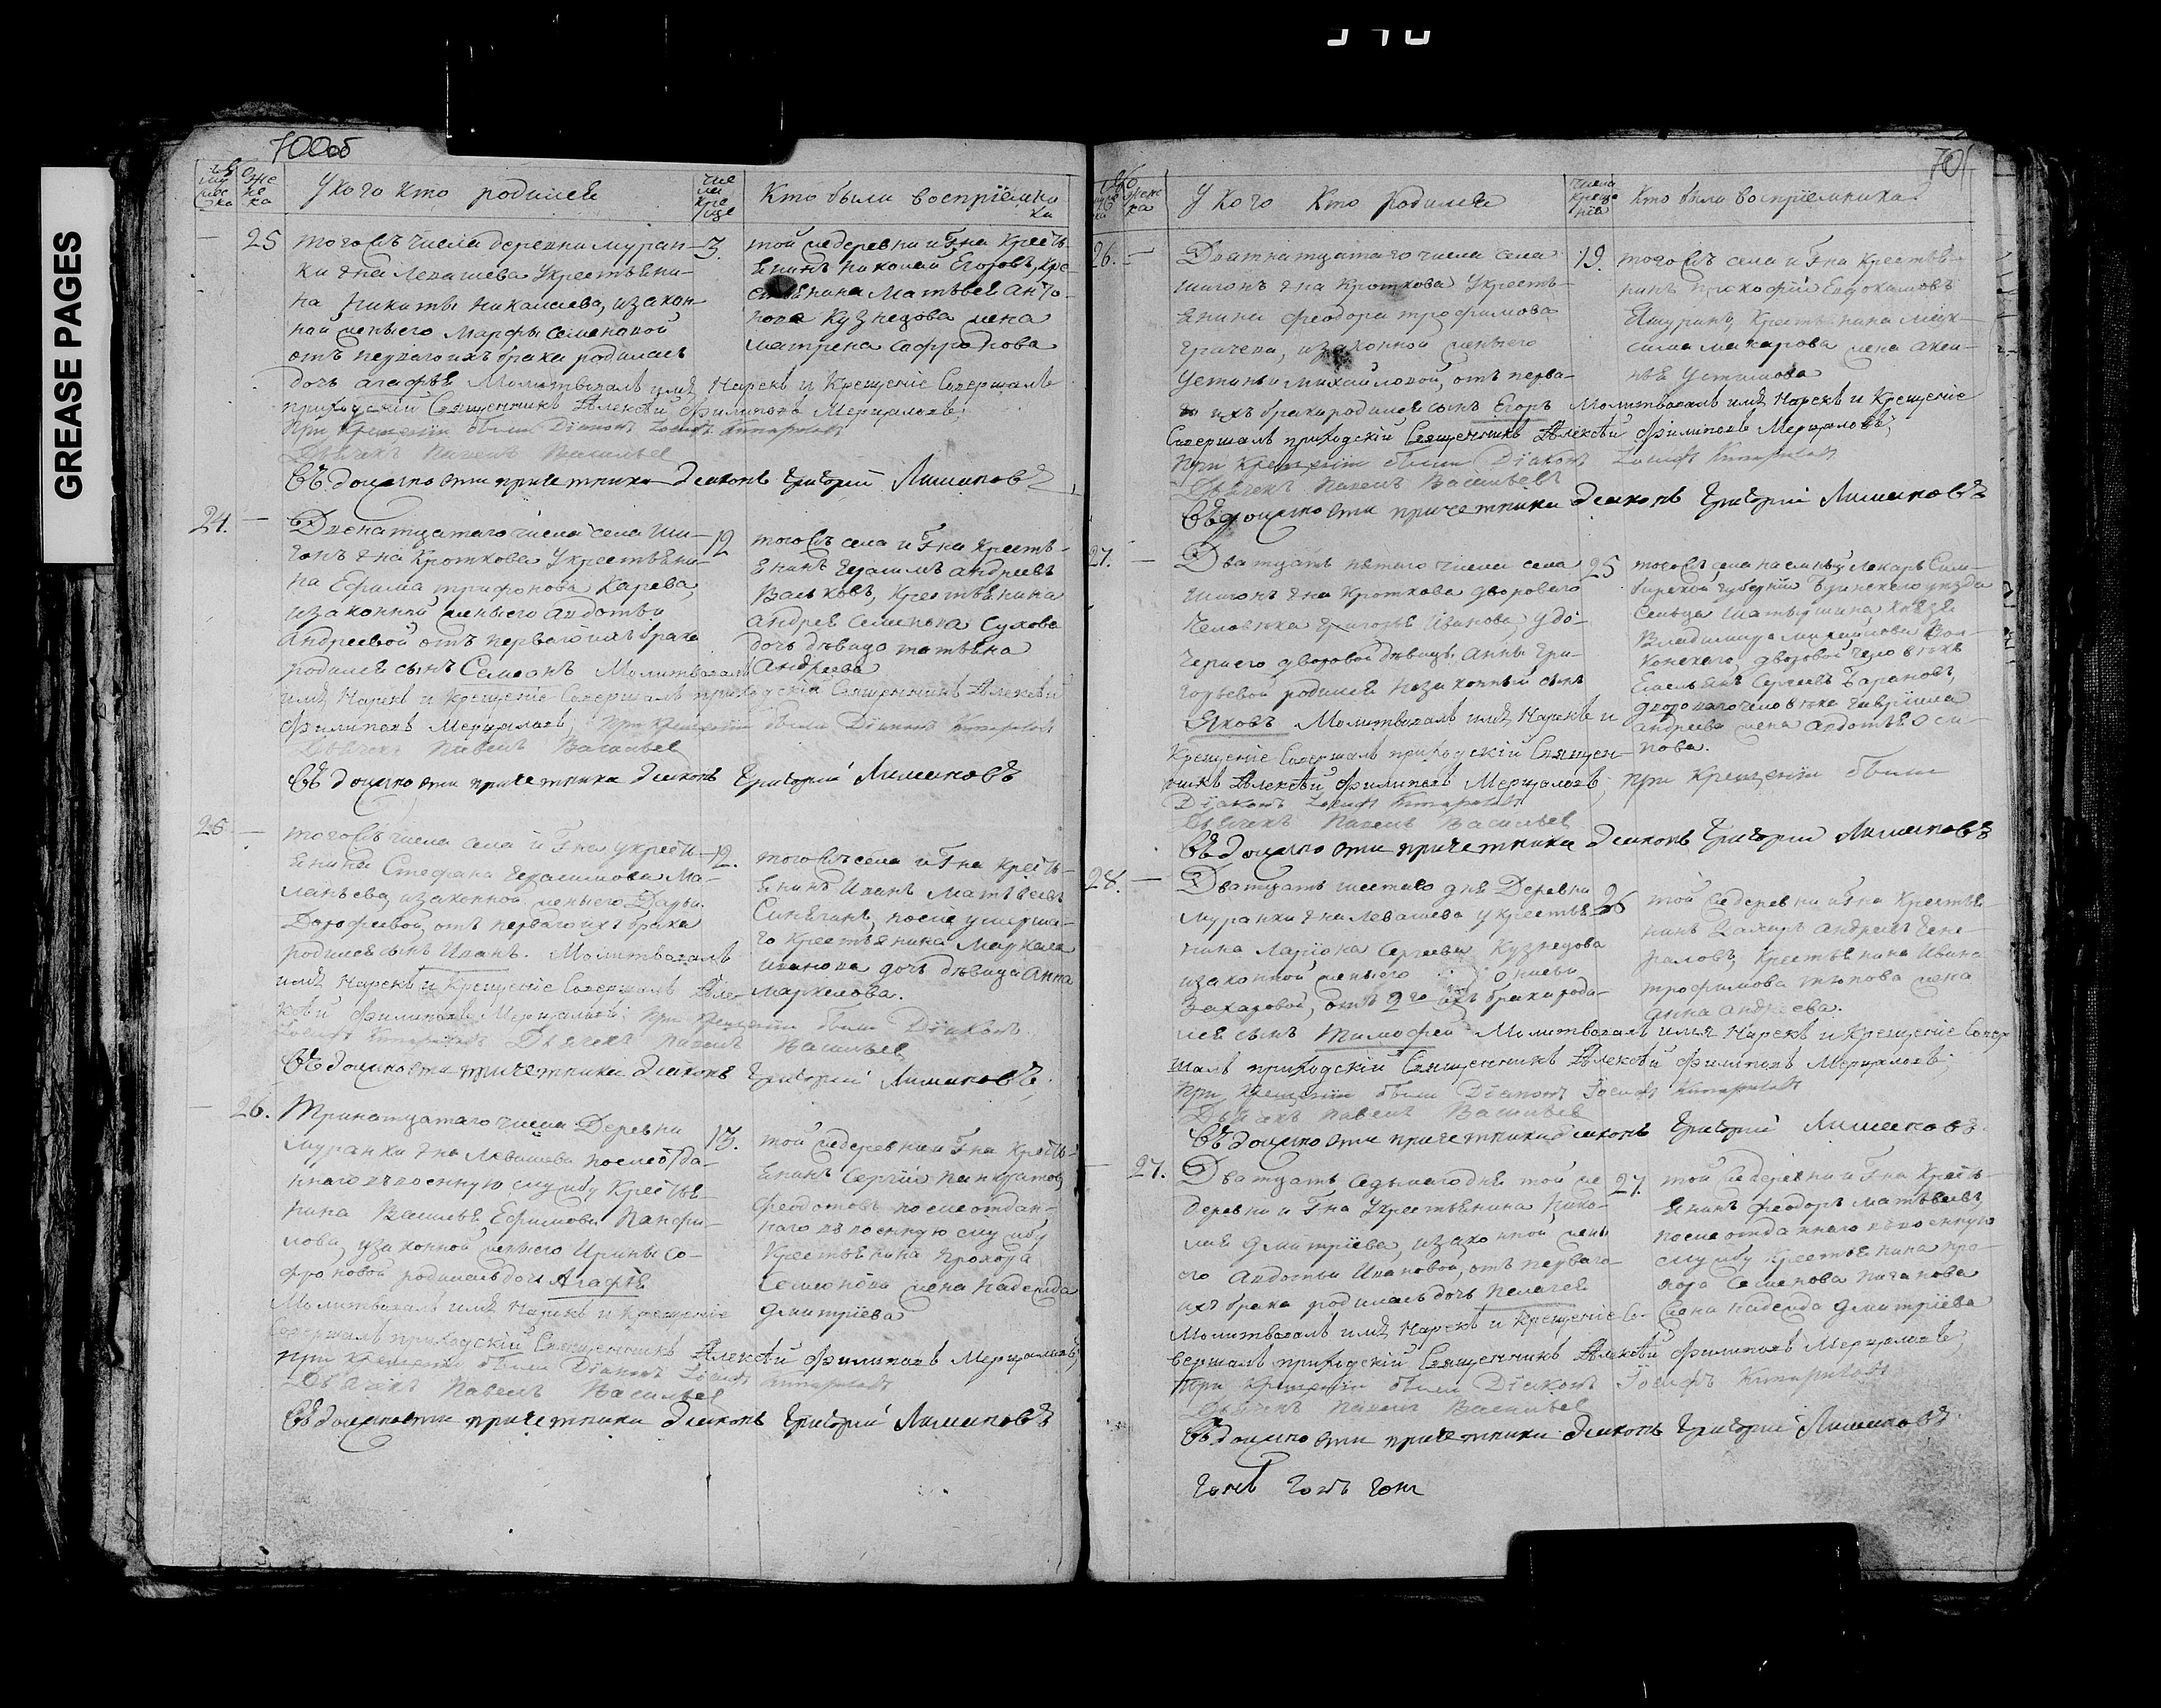 GREASE PAGES
700об
У кого кто родился
Кто были восприемни
ки
25
тогожъ числа деревни Муран-
3.
ки г на Левашева Укрестьяни-
на Никиты Николаева, иззакон-
ной жены его Марфы Семеновой
отъ перваго ихъ брака родилась
дочь Агафья Молитвовалъ имя Нарекъ и Крещение Совершалъ
приходский Священникъ Алексѣй Филиповъ Мерцаловъ;
При Крещении были Диаконъ
Дьячекъ Павелъ Васильев
Въ должности причетника Диаконъ Григорий
той же деревни и г на Кресть-
янинъ Николай Егоровъ, Кре-
стьянина Матвея Анто-
нова Кузнецова жена
Матрена Сафронова
24.
Двенатцатаго числа села Ши-
12
гонъ г на Кроткова Укрестьяни-
на Ефима Трифонова Карева,
иззаконной жены его Авдотьи
Андреевой отъ перваго ихъ брака
родился сынъ Семионъ Молитвовалъ
имя Нарекъ и Крещение Совершалъ приходский Священникъ Алексѣй
Филиповъ Мерцаловъ; При Крещении были Диаконъ
Дьячекъ Павелъ Васильев
Въ должности причетника Диаконъ Григорий
тогожъ села и г на Кресть-
янинъ Герасимъ Андреевъ
Вальковъ, Крестьянина
Андрея Семенова Сухова
дочь дѣвица Татьяна
Андреева
25
тогожъ числа села и г на Укресть-
12.
янина Стефана Герасимова Ма-
ланьева, иззаконной жены его Дарьи
Дорофеевой, отъ перваго ихъ брака
родился сынъ Иванъ. Молитвовалъ
имя Нарекъ и Крещение Совершалъ Але-
ксѣй Филиповъ Мерцаловъ; При Крещении были Диаконъ
Дьячекъ Павелъ Васильев
Въ должности причетника Диаконъ Григорий
тогожъ села и г на Кресть-
янинъ Иванъ Матвеевъ
Синягинъ, после умерша-
го Крестьянина Маркела
Иванова дочь дѣвица Анна
Маркелова.
26.
Тринатцатаго числа Деревни
13.
Муранки г на Левашева после отда-
ннаго въ военную службу Крестья-
нина Василья Ефимова Панфи-
лова, иззаконной жены его Ирины Со-
фроновой родилась дочь Агафья
Молитвовалъ имя Нарекъ и Крещение
Совершалъ приходский Священникъ Алексѣй Филиповъ Мерцаловъ;
При Крещении были Диаконъ
Дьячекъ Павелъ Васильев
Въ должности причетника Диаконъ Григорий
той же деревни и г на Кресть-
янинъ Сергий Панкратов
Феодотовъ после отдан-
наго въ военную службу
Крестьянина Прохора
Семионова жена Надежда
Дмитриева
701
У кого Кто родился
Кто были восприемники
26.
Девятнатцатаго числа села
19.
Шигонъ г на Кроткова Укресть-
янина Феодора Трофимова
Грачева, иззаконной жены его
Устиньи Михайловой, отъ перва-
го ихъ брака родился сынъ Егоръ Молитвовалъ имя Нарекъ и Крещение
Совершалъ приходский Священникъ Алексѣй Филиповъ Мерцаловъ;
При Крещении были Диаконъ
Дьячекъ Павелъ Васильевъ
Въ должности причетника Диаконъ Григорий
тогожъ села и г на Крестья-
нинъ Прокофий Евдокимовъ
Крестьянина Мак-
сима Макарова жена Акси-
нья Устимова
27.
Дватцать пятаго числа села
25
Шигонъ г на Кроткова дворового
Человѣка Григорья Иванова, у до-
чери его дворовой дѣвицы Анны Гри-
горьевой родился незаконный сынъ
Яковъ Молитвовалъ имя Нарекъ и
Крещение Совершалъ приходский Священ-
никъ Алексѣй Филиповъ Мерцаловъ; При Крещении были
Диаконъ
Дьячекъ Павелъ Васильев
Въ должности причетника Диаконъ Григорий
тогожъ села наемный лекарь Сим-
бирской губернии Буинскаго уѣзда
Сельца Князя
Владимира Михайлова Вол-
конскаго, дворовой человѣкъ
Емельянъ Сергеевъ Барановъ,
дворового человѣка Гавриила
Андреева жена Авдотья Оси-
пова.
28.
Дватцать шестаго дня Деревни
26
Муранки г на Левашева у крестья-
нина Лариона Сергеева Кузнецова
иззаконной жены его
Захаровой, отъ 2 го ихъ брака роди-
лся сынъ Тимофей Молитвовалъ имя Нарекъ и Крещение Совер
шалъ приходский Священникъ Алексѣй Филиповъ Мерцаловъ;
При Крещении были Диаконъ
Дьячекъ Павелъ Васильев
Въ должности причетника Диаконъ Григорий
той же деревни и г на Крестья-
нинъ Захаръ Андреевъ Гене-
раловъ, Крестьянина Ивана
Трофимова жена
Анна Андреева.
27.
Дватцать Седьмаго дня той же
27.
деревни и г на Укрестьянина Нико-
лая Дмитриева, иззаконной жены
его Авдотьи Ивановой, отъ перваго
ихъ брака родилась дочь Пелагея
Молитвовалъ имя Нарекъ и Крещение Со-
вершалъ приходский Священникъ Алексѣй Филиповъ Мерцаловъ;
При Крещении были Диаконъ
Дьячекъ Павелъ Васильев
Въ должности причетника Диаконъ Григорий
той же деревни и г на Кресть-
янинъ Феодоръ Матвеевъ,
после отданнаго въ военную
службу Крестьянина Про-
хора Семенова
жена Надежда Дмитриева